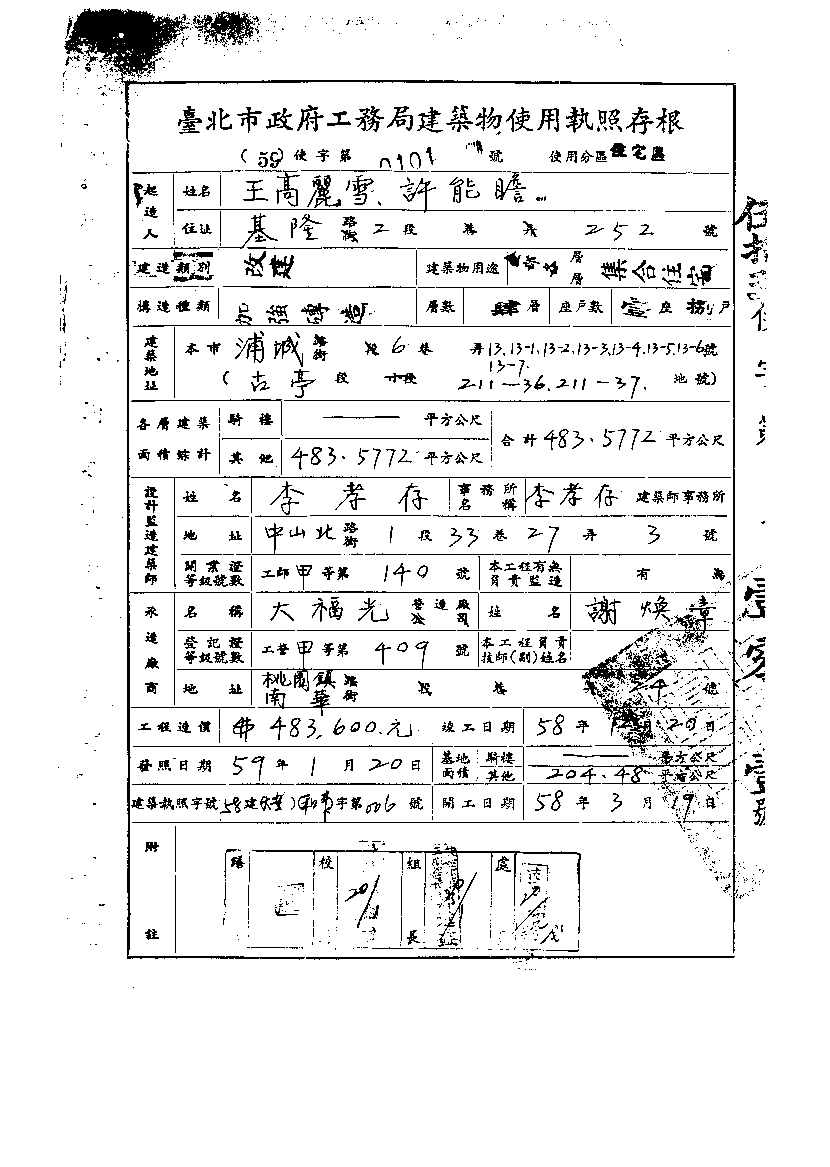 臺北市政府工務局建築物使用執照存根
(59) 使字第 0101 號 使用分區 住宅區
起造人 姓名 王高麗雪、許能瞻
住址 基隆 路街 2 段 巷 弄 252 號
建造類別 改建 建築物用途 層 層 集合住宅
構造種類 加強磚造 層數 肆 層 座戶數 壹 座 捌 戶
建築地址 本市 浦城 路街 段 6 巷 弄 13,13-1,13-2,13-3,13-4,13-5,13-6 號
13-7
( 古亭 段 小段 211-36.211-37. 地號)
各層建築面積綜計 騎樓 平方公尺 合計 483.5772 平方公尺
其他 483.5772 平方公尺
設計監造建築師 姓名 李孝存 事務所名稱 李孝存 建築師事務所
地址 中山北 路街 1 段 33 巷 27 弄 3 號
開業證等級號數 工師 甲 等第 140 號 本工程有無負責監造 有 無
承造廠商 名稱 大福光 營造廠公司 姓名 謝煥章
登記證等級號數 工營 甲 等第 409 號 本工程負責技師(副)姓名
地址 桃園鎮南華 路街 段 巷 弄 24 號
工程造價 483,600.元 竣工日期 58 年 12 月 20 日
發照日期 59 年 1 月 20 日 基地面積 騎樓 平方公尺
其他 204.48 平方公尺
建築執照字號 58 建 字第 006 號 開工日期 58 年 3 月 19 日
附註
繕 校 20/1 組長 處
使字第
壹號